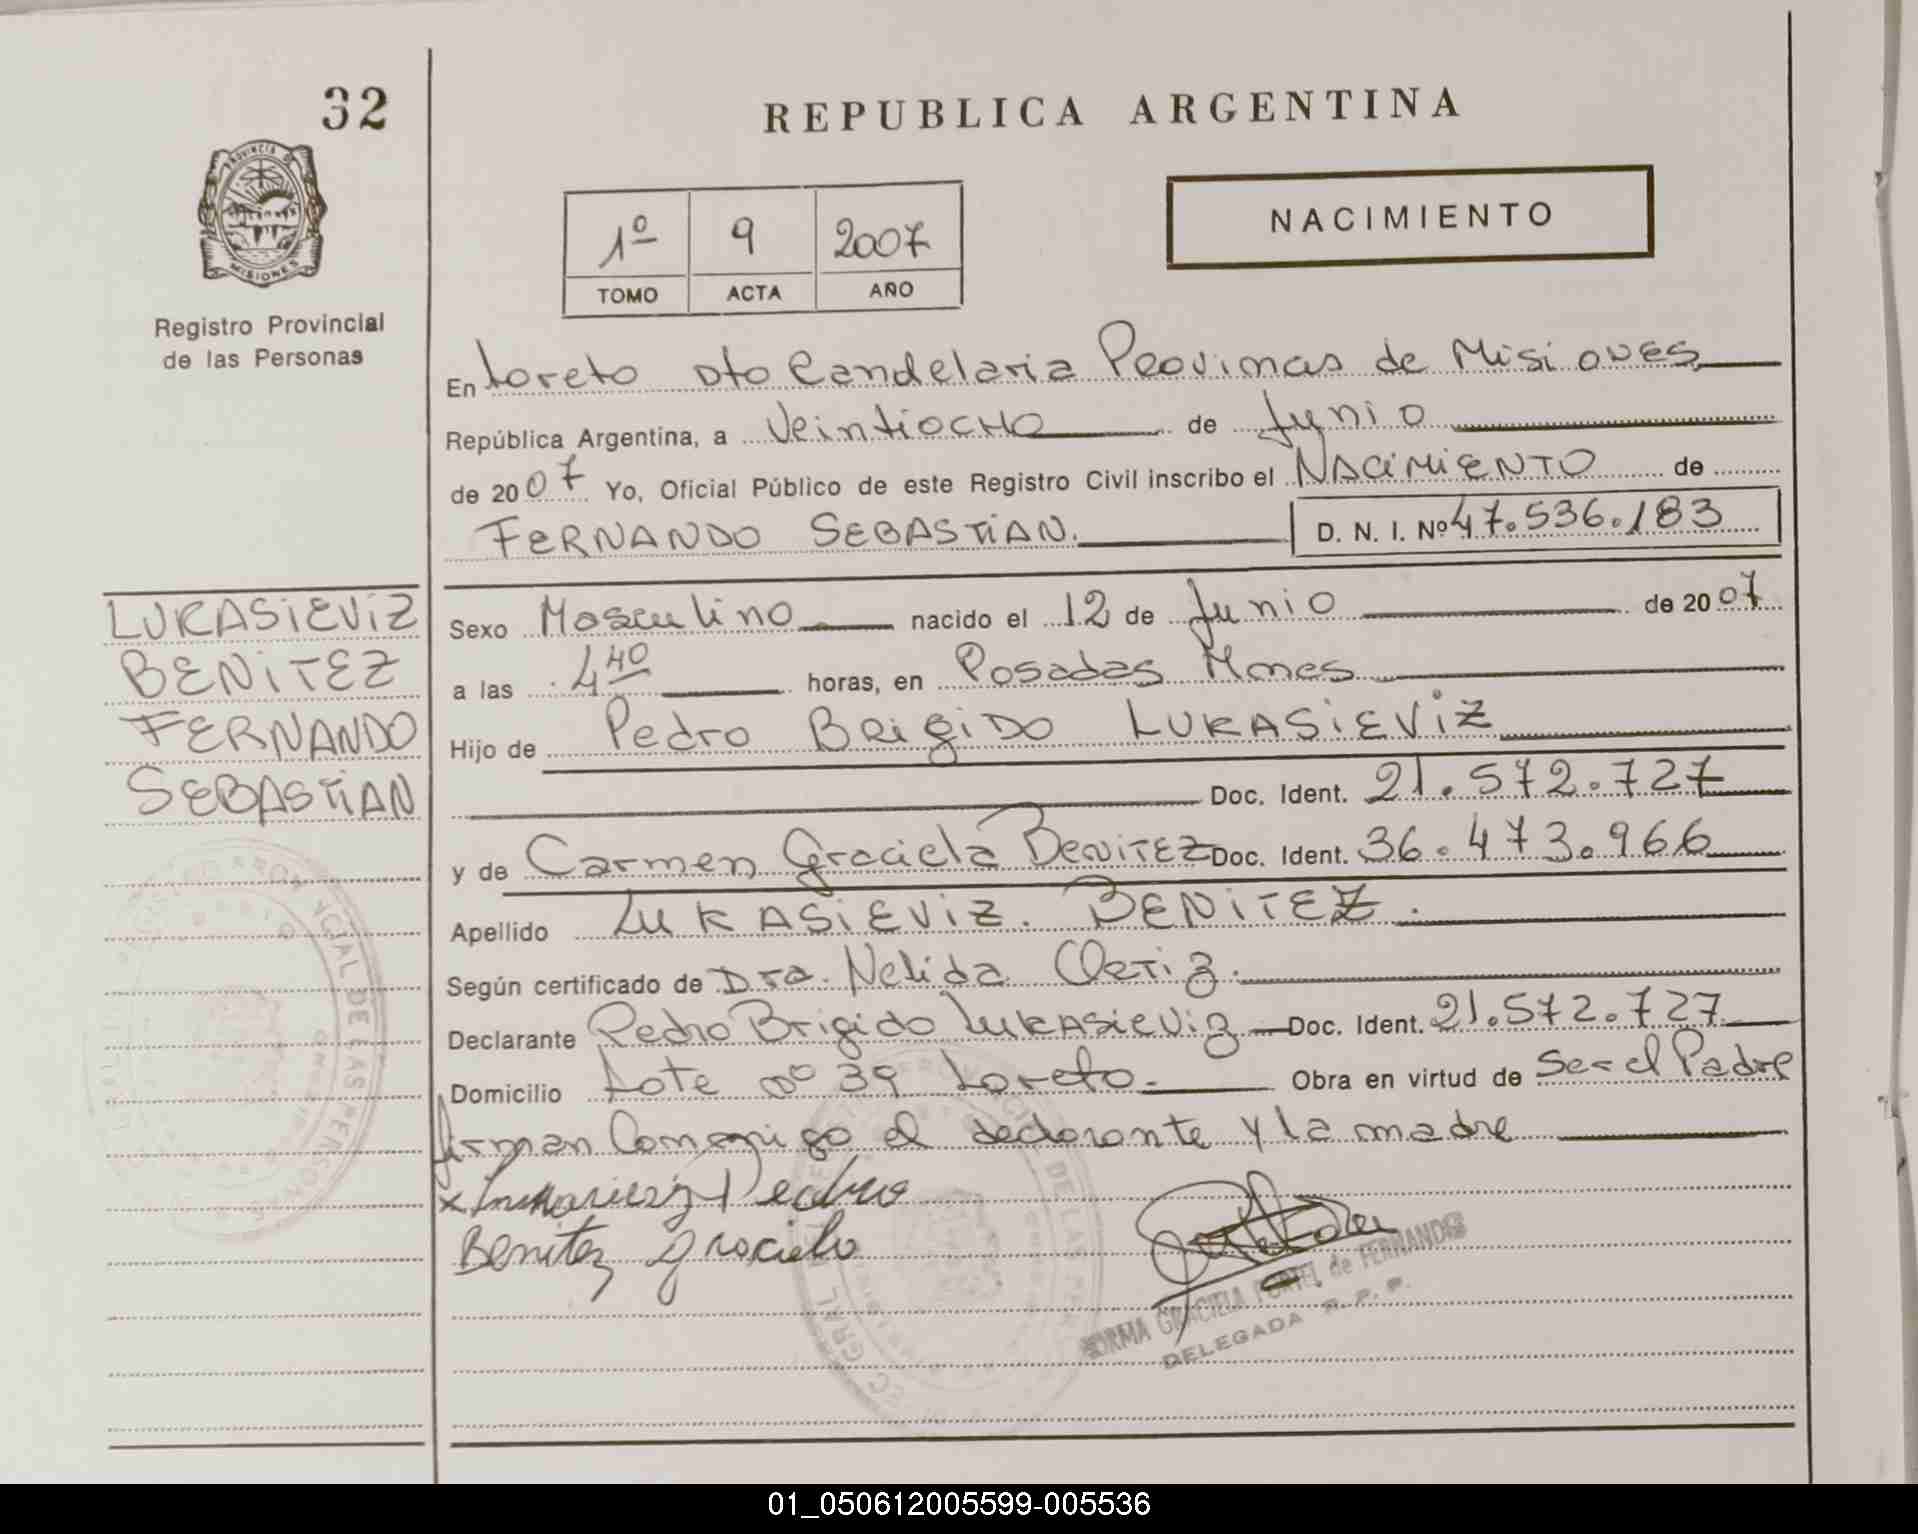 32
REPUBLICA ARGENTINA
PROVINCIA DE
MISIONES
Registro Provincial
de las Personas
1º 9 2007
TOMO ACTA AÑO
NACIMIENTO
En Loreto Dto Candelaria Provimas de Misiones
República Argentina, a Veintiocho de Junio
de 2007 Yo, Oficial Público de este Registro Civil inscribo el NACIMIENTO de
FERNANDO SEBASTIAN. D. N. I. Nº 47.536.183
LUKASIEVIZ
BENITEZ
FERNANDO
SEBASTIAN
Sexo Masculino nacido el 12 de Junio de 2007
a las 4 40 horas, en Posadas Mnes
Hijo de Pedro BRIGIDO LUKASIEVIZ
Doc. Ident. 21.572.727
y de Carmen Graciela BENITEZ Doc. Ident. 36.473.966
Apellido LUKASIEVIZ. BENITEZ.
Según certificado de Dra. Nelida
Declarante Pedro Brigido LUKASIEVIZ Doc. Ident. 21.572.727
Domicilio Lote nº 39 Loreto. Obra en virtud de Ser el Padre
firman Conmigo el declarante y la madre
x Pedro
Benitez Graciela
NORMA GRACIELA PORTEL de FERNANDES
DELEGADA R. P. P.
01_050612005599-005536